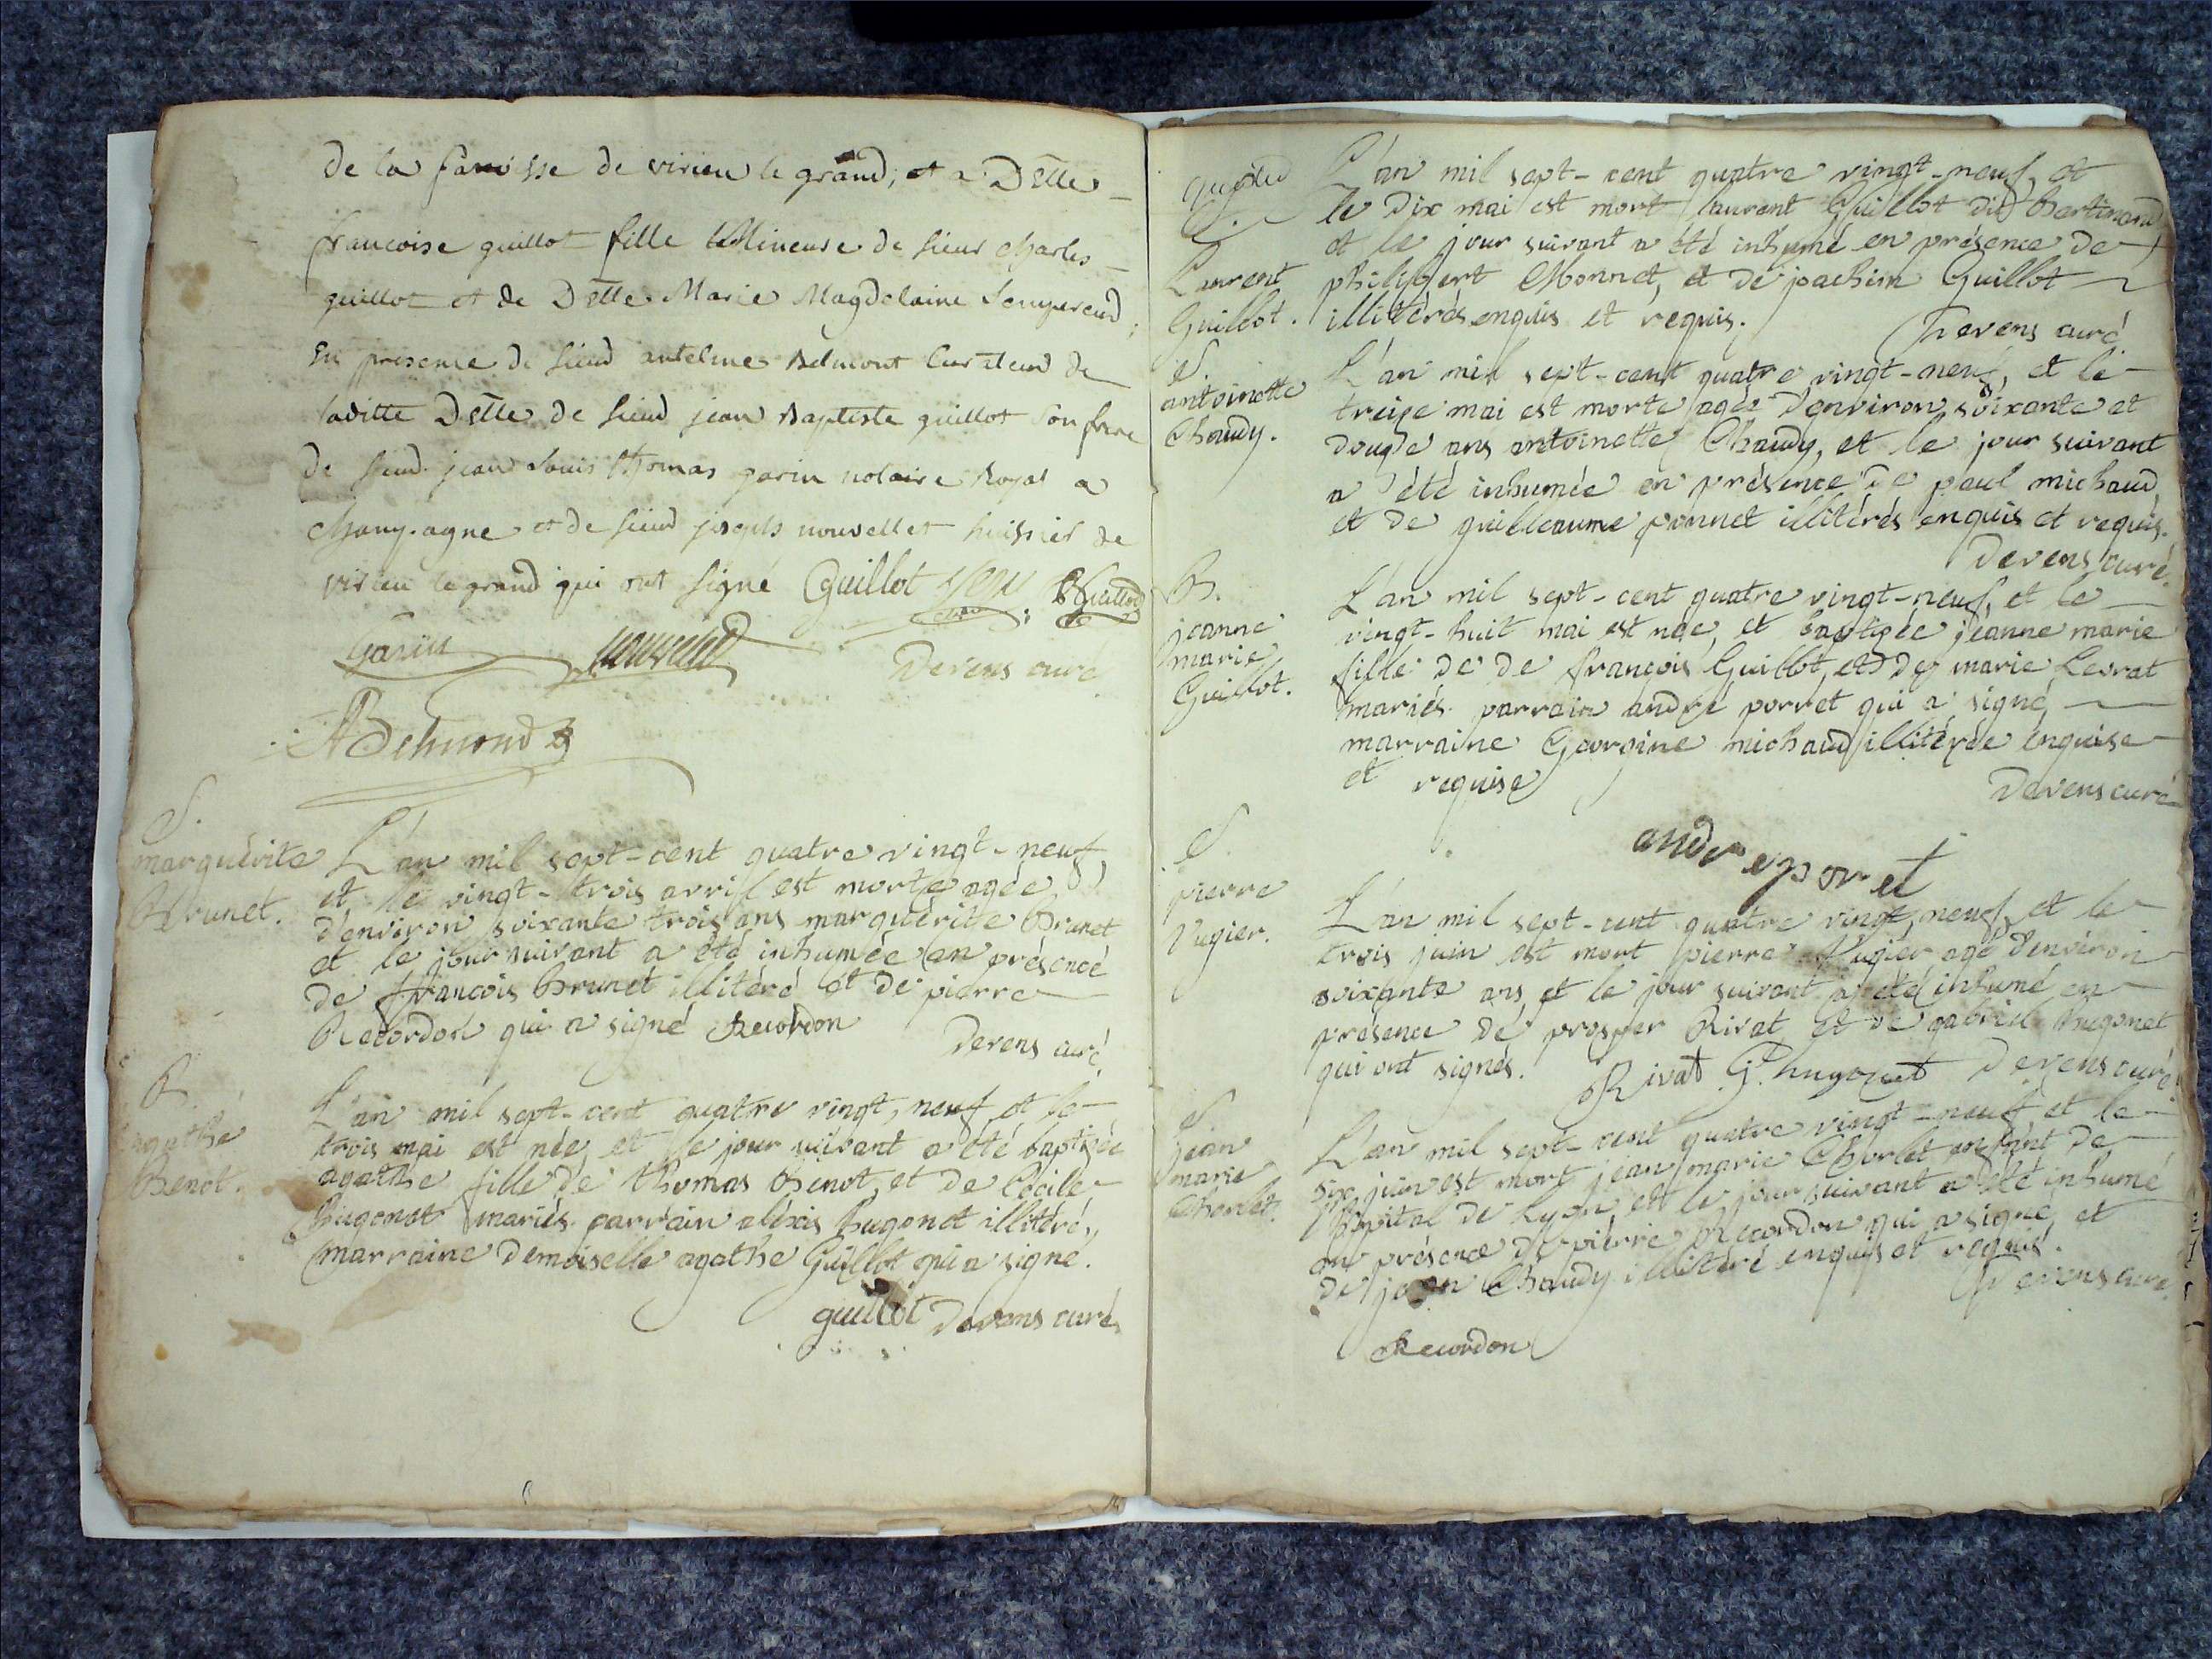 de la paroisse de virieu le grand; et a Dlle
francoise guillot fille Mineure de sieur charles
guillot et de Dlle Marie Magdelaine
En presence de sieur antelme Belmont Curateur de
laditte Dlle de sieur jean Baptiste guillot son frere
de sieur jean Louis thomas garin notaire Royal a
champagne et de sieur joseph nouvellet huissier de
virieu le grand qui ont signé Guillot B Guillot
Garin nouvellet Devens curé
A Belmond
S.
marguérite
Brunet.
L'an mil sept-cent quatre vingt-neuf,
et le vingt-trois avril est morte agée
d'environ soixante trois ans marguérite Brunet
et le jour suivant a été inhumée en présence
de françois Brunet illitéré et de pierre
Recordon qui a signé Recordon
Devens curé.
B.
agathe
Benot.
L'an mil sept-cent quatre vingt-neuf et le
trois mai est née, et le jour suivant a été baptisée
agathe fille de thomas Benot, et de Cécile
hugonet mariés. parrain aléxis hugonet illitéré,
marraine demoiselle agathe Guillot qui a signé.
guillot Devens curé
S.
Laurent
Guillot.
L'an mil sept-cent quatre vingt-neuf, et
le dix mai est mort laurent Guillot dit
et le jour suivant a été inhumé en présence de
philibert Monnet, et de joachim Guillot
illitérés enquis et requis.
Devens curé.
S.
antoinette
Chaudy.
L'an mil sept-cent quatre vingt-neuf, et le
treize mai est morte agée d'environ soixante et
douze ans antoinette Chaudy, et le jour suivant
a été inhumée en présence de paul michaud
et de guilleaume ponnet illitérés enquis et requis.
Devens curé.
B.
jeanne
marie
Guillot.
L'an mil sept-cent quatre vingt-neuf, et le
vingt-huit mai est née, et baptizée jeanne marie
fille de de françois Guillot, et de marie Levrat
mariés. parrain andré porret qui a signé,
marraine Georgine michaud illitérée enquise
et requise
Devens curé
andre poret
S.
pierre
Vugier.
L'an mil sept-cent quatre vingt-neuf, et le
trois juin est mort pierre Vugier agé d'environ
soixante ans et le jour suivant a été inhumé en
présence de prosper Rivat et de gabriel hugonet
qui ont signés.
Rivat G. hugonet Devens curé.
S.
jean
marie
Charlet.
L'an mil sept-cent quatre vingt-neuf et le
six juin est mort jean marie Charlet enfant de
l'hopital de Lyon et le jour suivant a été inhumé
en présence de pierre Recordon qui a signé, et
de jean Chaudy illitéré enquis et requis.
Devens curé.
Recordon